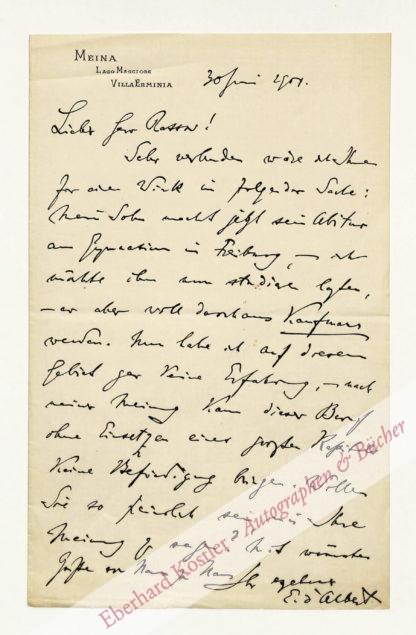 MEINA
LAGO MAGGIORE
VILLA ERMINIA
30 Juni 1901.
Lieber Herr Rassow!
Sehr verbunden wäre ich Ihnen
für einen Wink in folgender Sache:
Mein Sohn macht jetzt sein Abitur
am Gymnasium in Freiburg, – ich
möchte ihn nun studieren lassen,
– er aber will durchaus Kaufmann
werden. Nun habe ich auf diesem
Gebiet gar keine Erfahrung, – nach
meiner Meinung kann dieser Beruf
ohne Einsetzen eines großen Kapitals
keine Befriedigung bringen. Wollen
Sie so freundlich sein mir Ihre
Meinung zu sagen? Mit wärmsten
Grüßen von Haus zu Haus Ihr ergebener
E. d'Albert
Eberhard Köstler Autographen & Bücher